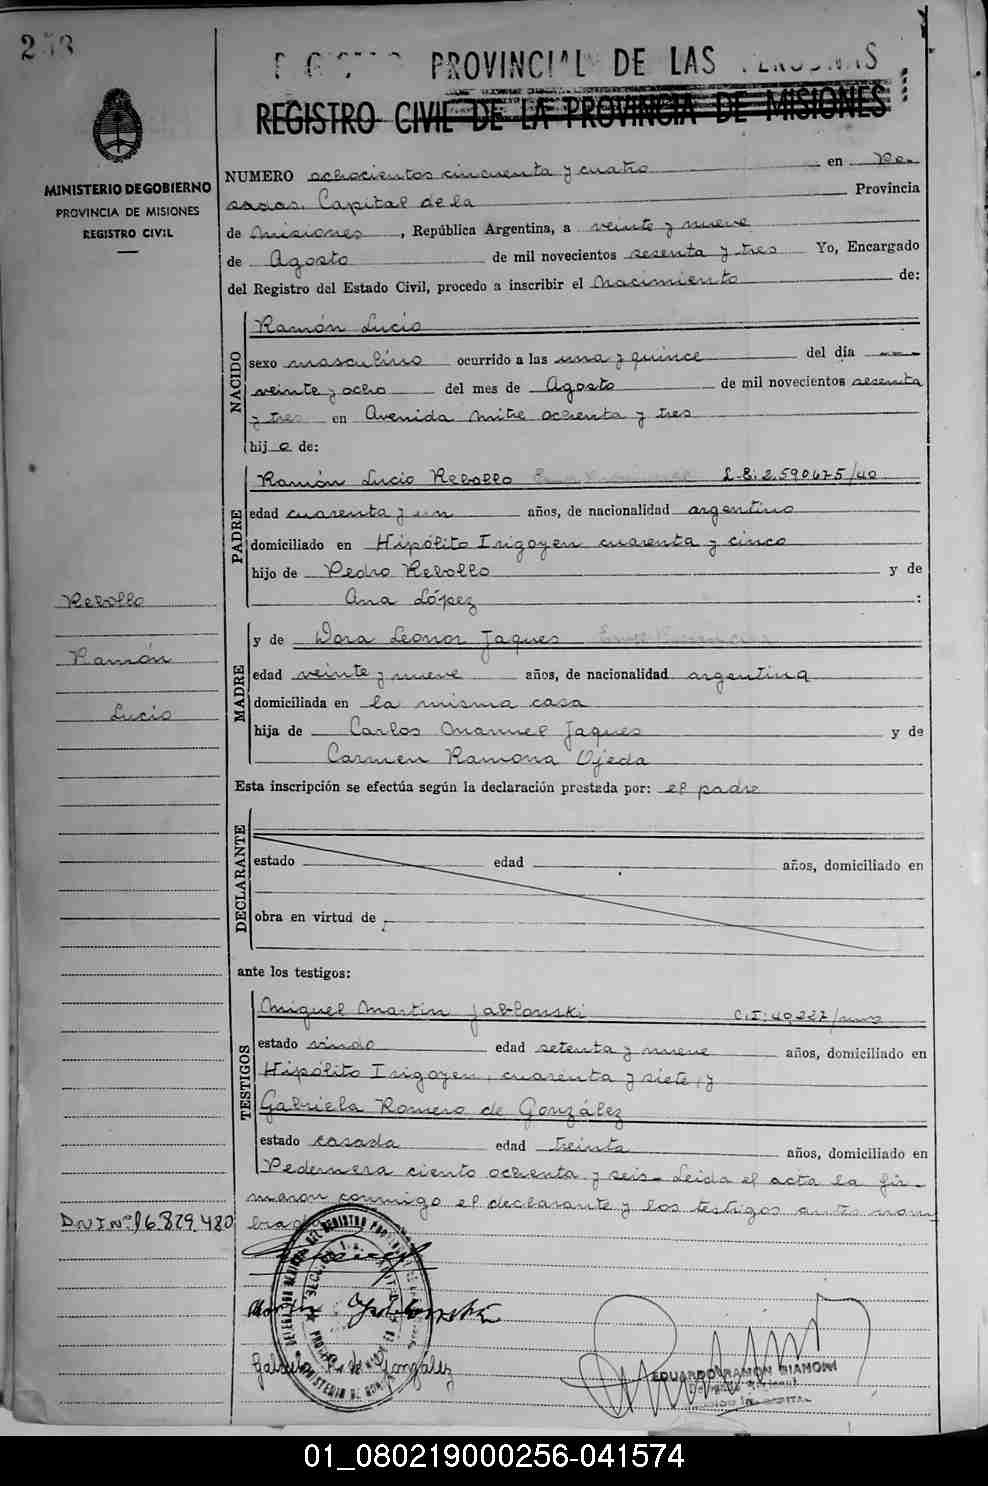 253
PROVINCIAL DE LAS PERSONAS
REGISTRO CIVIL DE LA PROVINCIA DE MISIONES
MINISTERIO DE GOBIERNO
PROVINCIA DE MISIONES
REGISTRO CIVIL
NUMERO ochocientos cincuenta y cuatro en Po-
sadas, Capital de la Provincia
de Misiones, República Argentina, a veinte y nueve
de Agosto de mil novecientos sesenta y tres Yo, Encargado
del Registro del Estado Civil, procedo a inscribir el Nacimiento de:
NACIDO
Ramón Lucio
sexo masculino ocurrido a las una y quince del día
veinte y ocho del mes de Agosto de mil novecientos sesenta
y tres en Avenida Mitre ochenta y tres
hijo de:
PADRE
Ramón Lucio Rebollo L.E: 2.590475/40
edad cuarenta y un años, de nacionalidad argentino
domiciliado en Hipólito Irigoyen cuarenta y cinco
hijo de Pedro Rebollo y de
Ana López :
Rebollo
Ramón
Lucio
MADRE
y de Dora Leonor Jaques
edad veinte y nueve años, de nacionalidad argentina
domiciliada en la misma casa
hija de Carlos Manuel Jaques y de
Carmen Ramona Ojeda
Esta inscripción se efectúa según la declaración prestada por: el padre
DECLARANTE
estado edad años, domiciliado en
obra en virtud de
ante los testigos:
TESTIGOS
Miguel Martin Jablonski C.I: 40227/mnes
estado viudo edad setenta y nueve años, domiciliado en
Hipólito Irigoyen, cuarenta y siete, y
Gabriela Romero de González
estado casada edad treinta años, domiciliado en
Pedernera ciento ochenta y seis. Leida el acta la fir-
maron conmigo el declarante y los testigos antes nom-
brados
DNI Nº 16.829.480
Martin Jablonski
Gabriela R. de González
EDUARDO RAMON BIANCHI
01_080219000256-041574